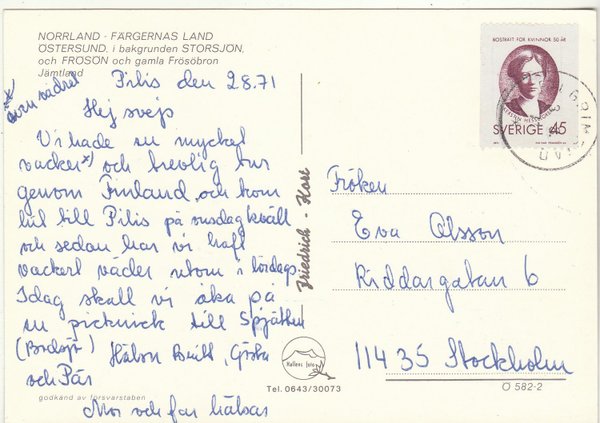 NORRLAND - FÄRGERNAS LAND
ÖSTERSUND, i bakgrunden STORSJÖN,
och FRÖSÖN och gamla Frösöbron
Jämtland
Pilis den 2.8.71
*) även vädret
Hej svejs
Vi hade en mycket
vacker*) och trevlig tur
genom Finland, och kom
hit till Pilis på onsdag kväll
och sedan har vi haft
vackert väder utom i lördags.
Idag skall vi åka på
en picknick till
Hälsn Britt, Gösta
och Pär
godkänd av försvarsstaben
Mor och far hälsar
Friedrich - Kort
Hallens foto
Tel. 0643/30073
RÖSTRÄTT FÖR KVINNOR 50 ÅR
SVERIGE 45
Fröken
Eva Olsson
Riddargatan 6
114 35 Stockholm
Ö 582-2